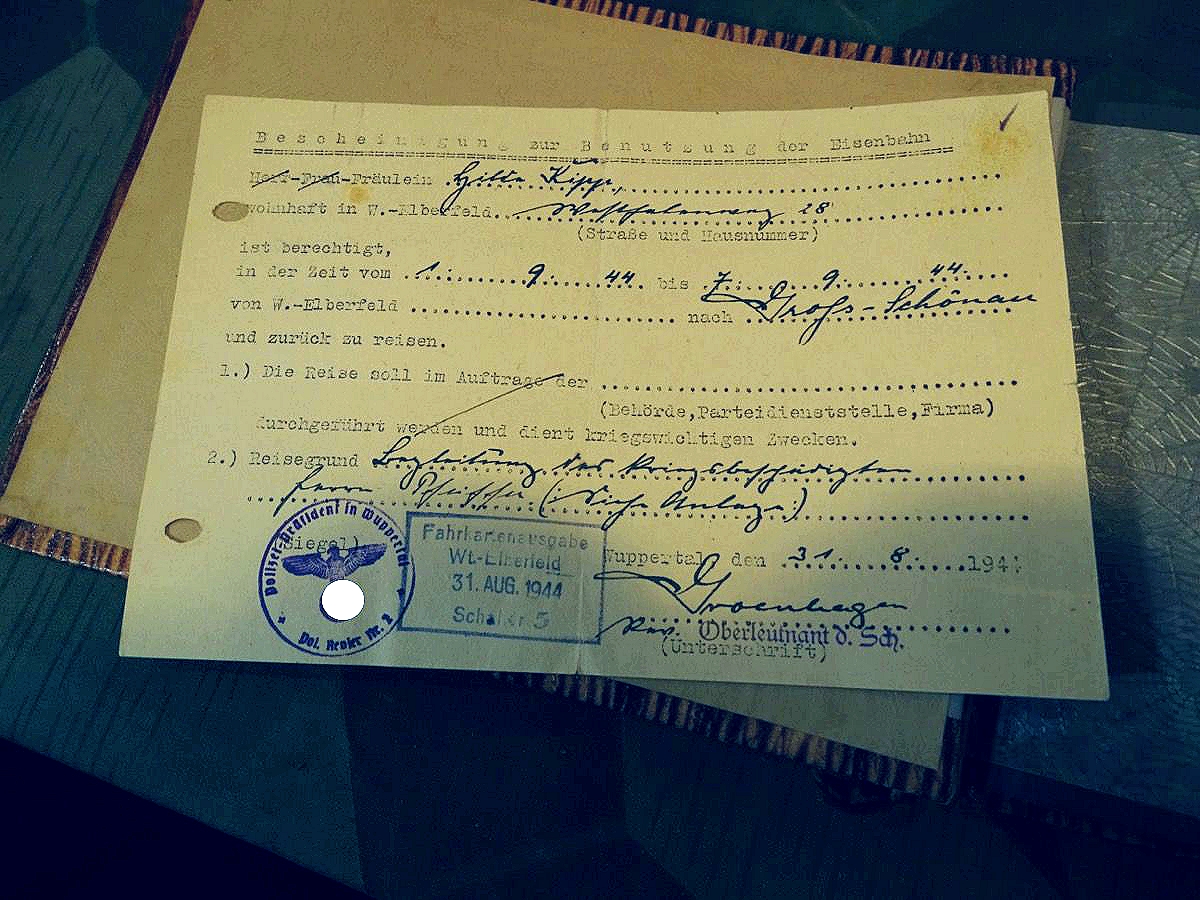 Bescheinigung zur Benutzung der Eisenbahn
Herr-Frau-Fräulein Hilde Kipp,
wohnhaft in W.-Elberfeld Westfalenweg 28
(Straße und Hausnummer)
ist berechtigt,
in der Zeit vom 1. 9. 44 bis 7. 9. 44.
von W.-Elberfeld nach Groß-Schönau
und zurück zu reisen.
1.) Die Reise soll im Auftrage der
(Behörde, Parteidienststelle, Firma)
durchgeführt werden und dient kriegswichtigen Zwecken.
2.) Reisegrund Begleitung des Kriegsbeschädigten
Herrn Pfeiffer (siehe Anlage)
(Siegel)
Polizei-Präsident in Wuppertal
Pol. Revier Nr. 2
Fahrkartenausgabe
Wt.-Elberfeld
31. AUG. 1944
Schalter 5
Wuppertal den 31. 8. 1944
Groenhagen
Rev. Oberleutnant d. Sch.
(Unterschrift)